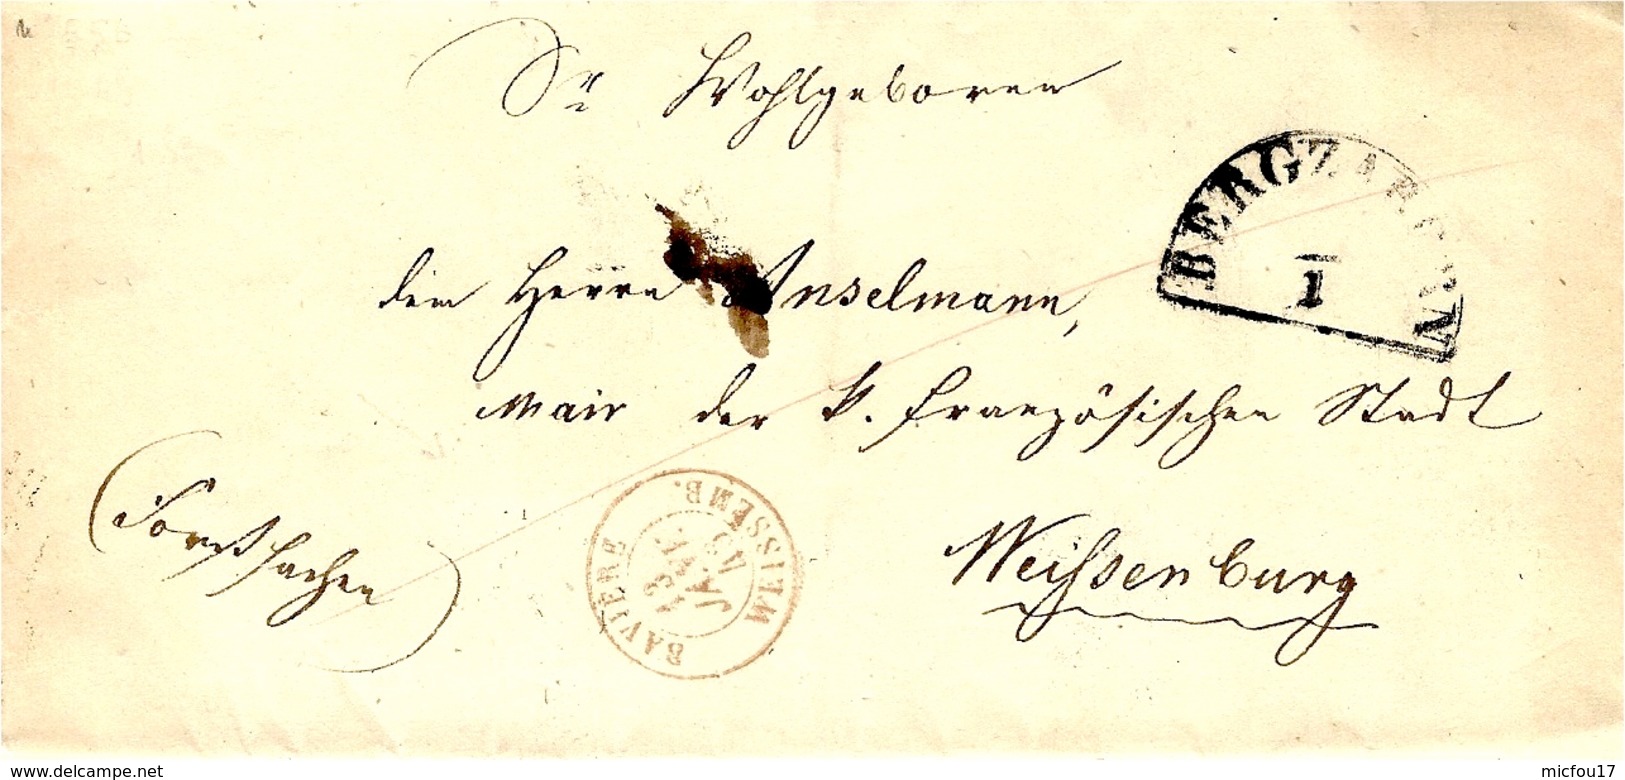 Sr Wohlgeboren
BERGZABERN
1
dem Herrn Anselmann,
Mair der k. französischen Stadt
(Forstsachen)
BAVIERE
WEISSEMB.
13
JANV.
Weißenburg
www.delcampe.net
micfou17